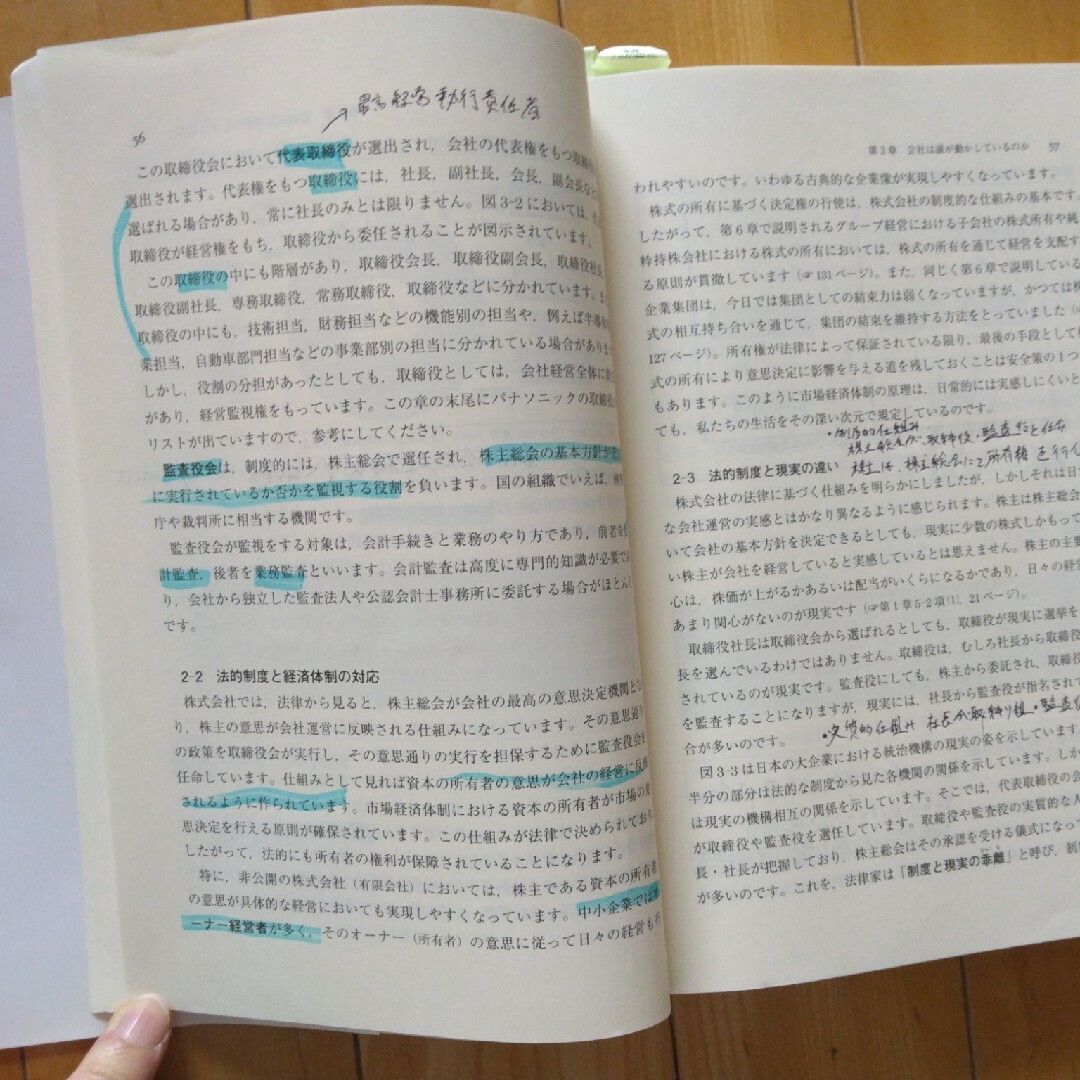 →最高経営執行責任者
56
この取締役会において代表取締役が選出され，会社の代表権をもつ取締
選出されます。代表権をもつ取締役には，社長，副社長，会長，副会長な
選ばれる場合があり，常に社長のみとは限りません。図3-2においては，
取締役が経営権をもち，取締役から委任されることが図示されています。
この取締役の中にも階層があり，取締役会長，取締役副会長，取締役社
取締役副社長，専務取締役，常務取締役，取締役などに分かれています。
取締役の中にも，技術担当，財務担当などの機能別の担当や，例えば半導
業担当，自動車部門担当などの事業部別の担当に分かれている場合があり
しかし，役割の分担があったとしても，取締役としては，会社経営全体に
があり，経営監視権をもっています。この章の末尾にパナソニックの取締役
リストが出ていますので，参考にしてください。
監査役会は，制度的には，株主総会で選任され，株主総会の基本方針が
に実行されているか否かを監視する役割を負います。国の組織でいえば，
庁や裁判所に相当する機関です。
監査役会が監視をする対象は，会計手続きと業務のやり方であり，前者を
計監査，後者を業務監査といいます。会計監査は高度に専門的知識が必要で
り，会社から独立した監査法人や公認会計士事務所に委託する場合がほとん
です。
2-2 法的制度と経済体制の対応
株式会社では，法律から見ると，株主総会が会社の最高の意思決定機関と
り，株主の意思が会社運営に反映される仕組みになっています。その意思通り
の政策を取締役会が実行し，その意思通りの実行を担保するために監査役会を
任命しています。仕組みとして見れば資本の所有者の意思が会社の経営に反
されるように作られています。市場経済体制における資本の所有者が市場の
思決定を行える原則が確保されています。この仕組みが法律で決められており
したがって，法的にも所有者の権利が保障されていることになります。
特に，非公開の株式会社（有限会社）においては，株主である資本の所有者
の意思が具体的な経営においても実現しやすくなっています。中小企業では
ーナー経営者が多く，そのオーナー（所有者）の意思に従って日々の経営も行
第3章 会社は誰が動かしているのか 57
われやすいのです。いわゆる古典的な企業像が実現しやすくなっています。
株式の所有に基づく決定権の行使は，株式会社の制度的な仕組みの基本です。
したがって，第6章で説明されるグループ経営における子会社の株式所有や純
粋持株会社における株式の所有においては，株式の所有を通じて経営を支配す
る原則が貫徹しています（☞131ページ）。また，同じく第6章で説明している
企業集団は，今日では集団としての結束力は弱くなっていますが，かつては株
式の相互持ち合いを通じて，集団の結束を維持する方法をとっていました（
127ページ）。所有権が法律によって保証されている限り，最後の手段として
式の所有により意思決定に影響を与える道を残しておくことは安全策の1つ
もあります。このように市場経済体制の原理は，日常的には実感しにくいと
ても，私たちの生活をその深い次元で規定しているのです。
・制度的仕組み
株主総会が、取締役・監査役を任命
2-3 法的制度と現実の違い
株主は、株主総会にて所有権を行
株式会社の法律に基づく仕組みを明らかにしましたが，しかしそれは日
な会社運営の実感とはかなり異なるように感じられます。株主は株主総会
いて会社の基本方針を決定できるとしても，現実に少数の株式しかもって
い株主が会社を経営していると実感しているとは思えません。株主の主要
心は，株価が上がるかあるいは配当がいくらになるかであり，日々の経営
あまり関心がないのが現実です（☞第1章5-2項(1)，21ページ）。
取締役社長は取締役会から選ばれるとしても，取締役が現実に選挙を
長を選んでいるわけではありません。取締役は，むしろ社長から取締役
されているのが現実です。監査役にしても，株主から委託され，取締役
を監査することになりますが，現実には，社長から監査役が指名されて
合が多いのです。
・実質的仕組み 社長が取締り役・監査役
図3-3は日本の大企業における統治機構の現実の姿を示しています。しか
半分の部分は法的な制度から見た各機関の関係を示しています。
は現実の機構相互の関係を示しています。そこでは，代表取締役の会
が取締役や監査役を選任しています。取締役や監査役の実質的な人
長・社長が把握しており，株主総会はその承認を受ける儀式になって
が多いのです。これを，法律家は「制度と現実の乖離」と呼び，制